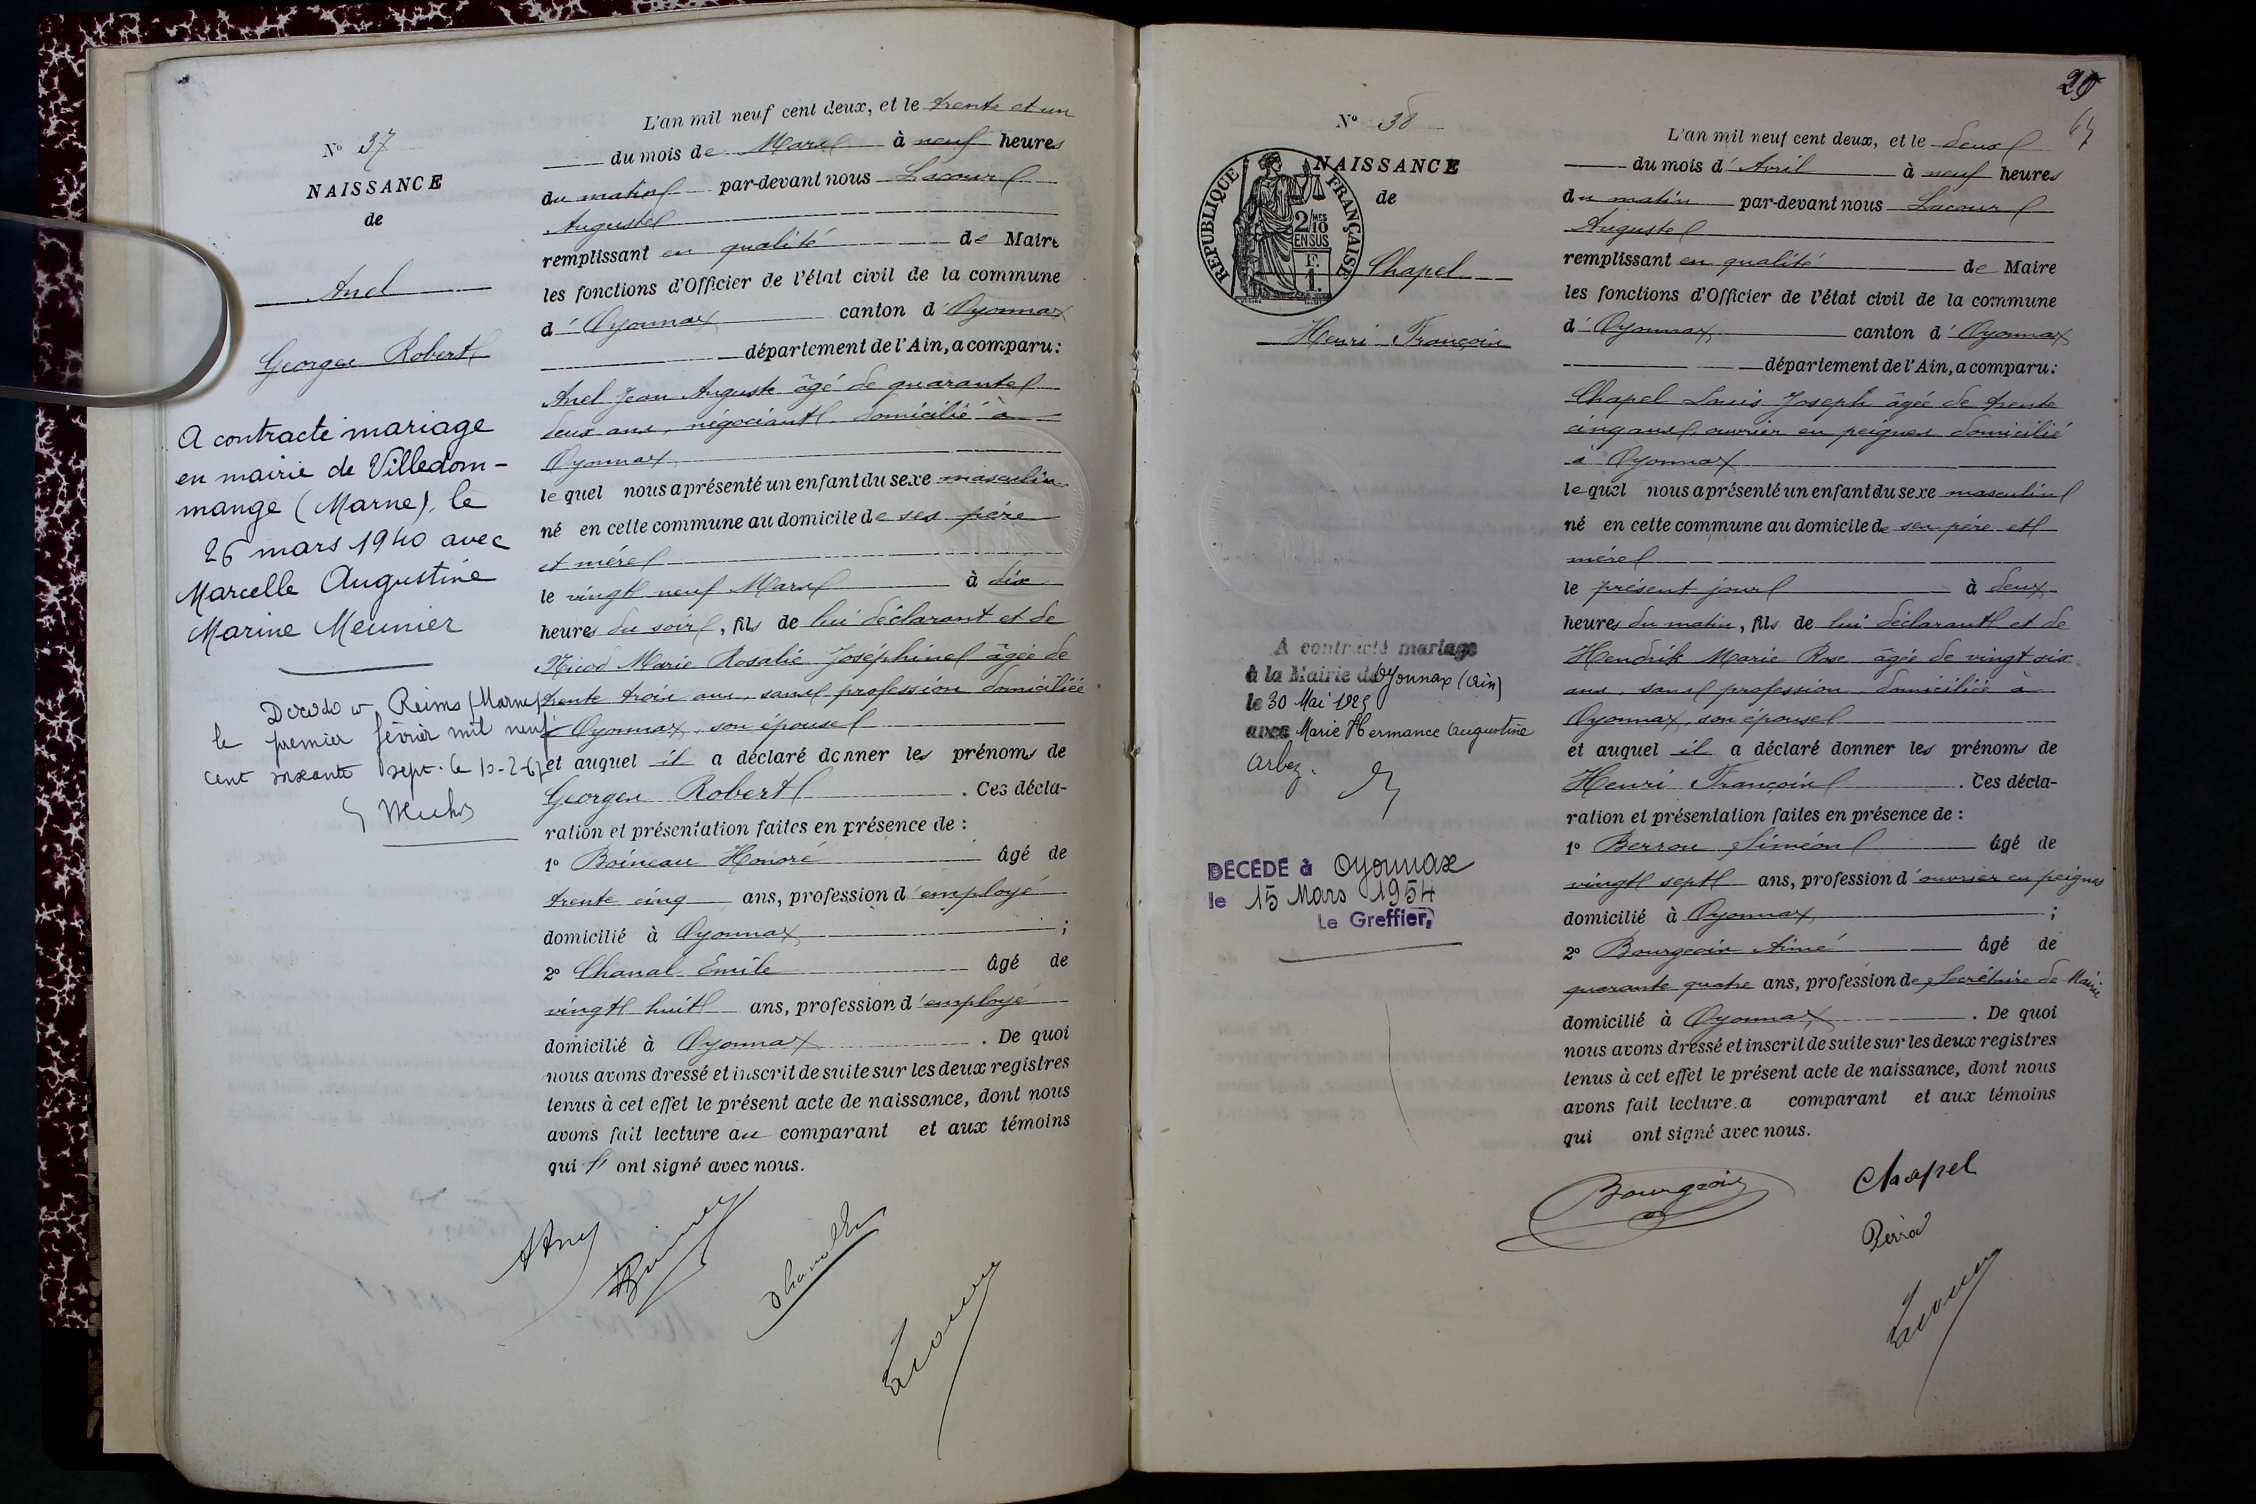 N° 37
NAISSANCE
de
Anel
Georges Robert
A contracté mariage
en mairie de Villedom-
mange (Marne), le
26 mars 1940 avec
Marcelle Augustine
Marine Meunier
Décédé à Reims (Marne)
le premier février mil neuf
cent soixante sept. le 10-2-67
L'an mil neuf cent deux, et le trente et un
du mois de Mars à neuf heures
du matin par-devant nous Lacour
Auguste
remplissant en qualité de Maire
les fonctions d'Officier de l'état civil de la commune
d'Oyonnax canton d'Oyonnax
département de l'Ain, a comparu :
Anel Jean Auguste âgé de quarante
deux ans, négociant, domicilié à
Oyonnax
lequel nous a présenté un enfant du sexe masculin
né en cette commune au domicile de ses père
et mère
le vingt neuf Mars à dix
heures du soir, fils de lui déclarant et de
Nicod Marie Rosalie Joséphine âgée de
trente trois ans, sans profession domiciliée
à Oyonnax, son épouse
et auquel il a déclaré donner les prénoms de
Georges Robert . Ces décla-
ration et présentation faites en présence de :
1° Boineau Honoré âgé de
trente cinq ans, profession d'employé
domicilié à Oyonnax ;
2° Chanal Emile âgé de
vingt huit ans, profession d'employé
domicilié à Oyonnax . De quoi
nous avons dressé et inscrit de suite sur les deux registres
tenus à cet effet le présent acte de naissance, dont nous
avons fait lecture au comparant et aux témoins
qui ont signé avec nous.
Lacour
20
N° 38
NAISSANCE
de
RÉPUBLIQUE FRANÇAISE
2/10 MES
EN SUS
F.
1.
Chapel
Henri François
A contracté mariage
à la Mairie de Oyonnax (Ain)
le 30 Mai 1925
avec Marie Hermance Augustine
Arbez.
DÉCÉDÉ à Oyonnax
le 15 Mars 1954
Le Greffier,
L'an mil neuf cent deux, et le deux
du mois d'Avril à neuf heures
du matin par-devant nous Lacour
Auguste
remplissant en qualité de Maire
les fonctions d'Officier de l'état civil de la commune
d'Oyonnax canton d'Oyonnax
département de l'Ain, a comparu :
Chapel Louis Joseph âgée de trente
cinq ans, ouvrier en peignes domicilié
à Oyonnax
lequel nous a présenté un enfant du sexe masculin
né en cette commune au domicile de ses père et
mère
le présent jour à deux
heures du matin, fils de lui déclarant et de
Hendrik Marie Rose âgée de vingt six
ans, sans profession domiciliée à
Oyonnax, son épouse
et auquel il a déclaré donner les prénoms de
Henri François . Ces décla-
ration et présentation faites en présence de :
1° Berrou Siméon âgé de
vingt sept ans, profession d'ouvrier en peignes
domicilié à Oyonnax ;
2° Bourgeois Aimé âgé de
quarante quatre ans, profession de Secrétaire de Mairie
domicilié à Oyonnax . De quoi
nous avons dressé et inscrit de suite sur les deux registres
tenus à cet effet le présent acte de naissance, dont nous
avons fait lecture a comparant et aux témoins
qui ont signé avec nous.
Bourgeois
Chapel
Lacour